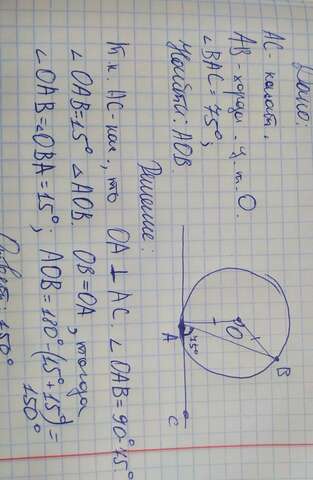 Дано:
AC - касат.
AB - хорда. ц. т. O.
∠BAC = 75°;
Найти: AOB.
Решение:
т.к. AC - кас., то OA ⊥ AC. ∠OAB = 90° 75°
∠OAB = 15° △AOB. OB = OA, тогда
∠OAB = ∠OBA = 15°; AOB = 180° - (15° + 15°) =
150°
Ответ: 150°
O
B
A
75°
C